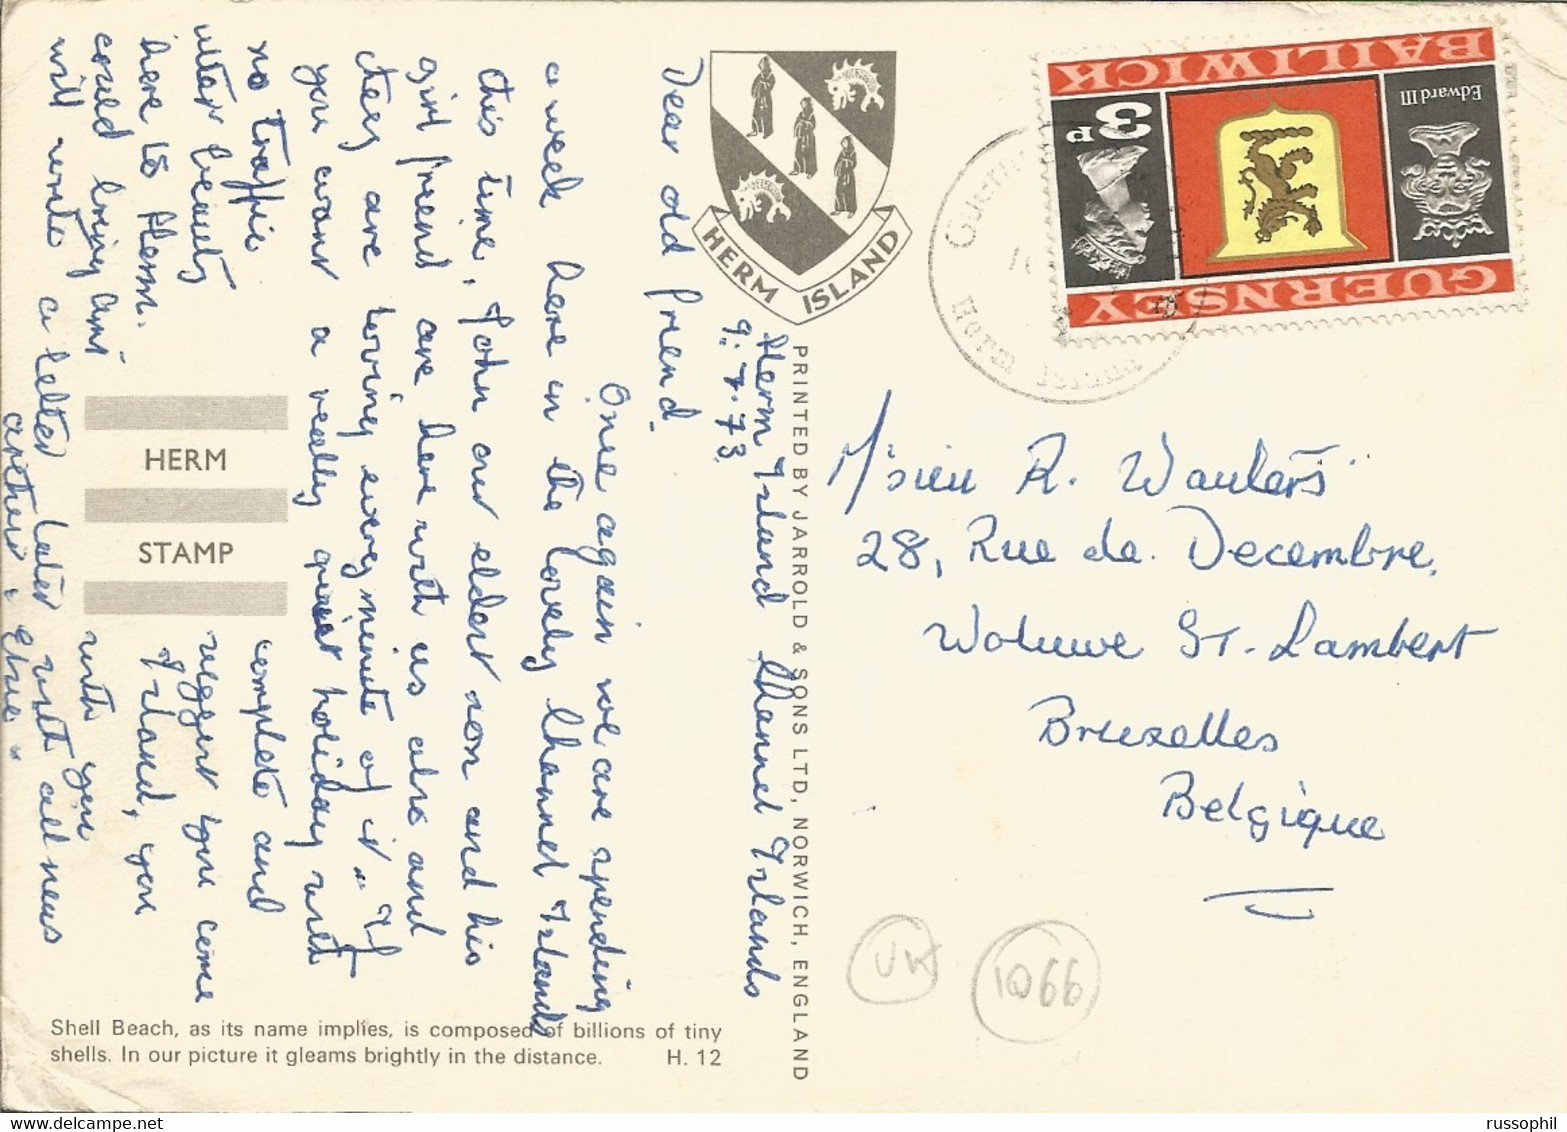 Herm Island Channel Islands
9.7.73
Dear old friend.
Once again we are spending
a week here in the lovely Channel Islands
this time, John our eldest son and his
girl friend are here with us also and
they are loving every minute of it.. If
you want a really quiet holiday with
no traffic complete and
utter beauty suggest you come
here to Herm. Island, you
could bring with you
will write a letter later with all news
HERM ISLAND
HERM
STAMP
Shell Beach, as its name implies, is composed of billions of tiny
shells. In our picture it gleams brightly in the distance. H. 12
PRINTED BY JARROLD & SONS LTD, NORWICH, ENGLAND
GUERNSEY
BAILIWICK
3P
Edward III
Herm Island
M'sieu R. Wauters
28, Rue de. Decembre.
Woluwe St. Lambert
Bruxelles
Belgique
UK
1066
russophil
www.delcampe.net